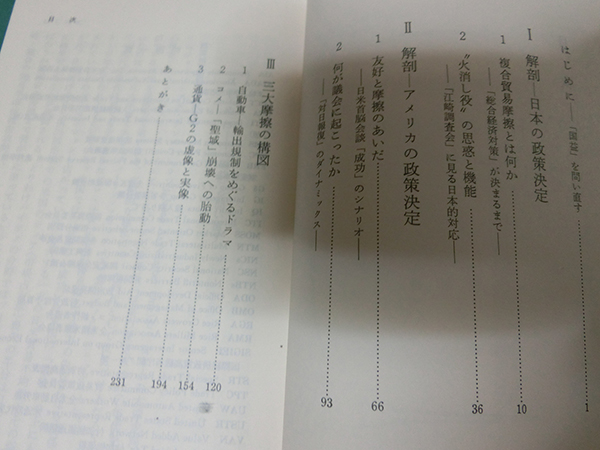 はじめに——「国益」を問い直す……1
Ⅰ 解剖—日本の政策決定
1 複合貿易摩擦とは何か……10
——「総合経済対策」が決まるまで——
2 〝火消し役〟の思惑と機能……36
——「江崎調査会」に見る日本的対応——
Ⅱ 解剖—アメリカの政策決定
1 友好と摩擦のあいだ……66
——日米首脳会談「成功」のシナリオ——
2 何が議会に起こったか……93
——「対日報復」のダイナミックス——
目次
Ⅲ 三大摩擦の構図
1 自動車—輸出規制をめぐるドラマ……120
2 コメ—「聖域」崩壊への胎動……154
3 通貨—G2の虚像と実像……194
あとがき……231